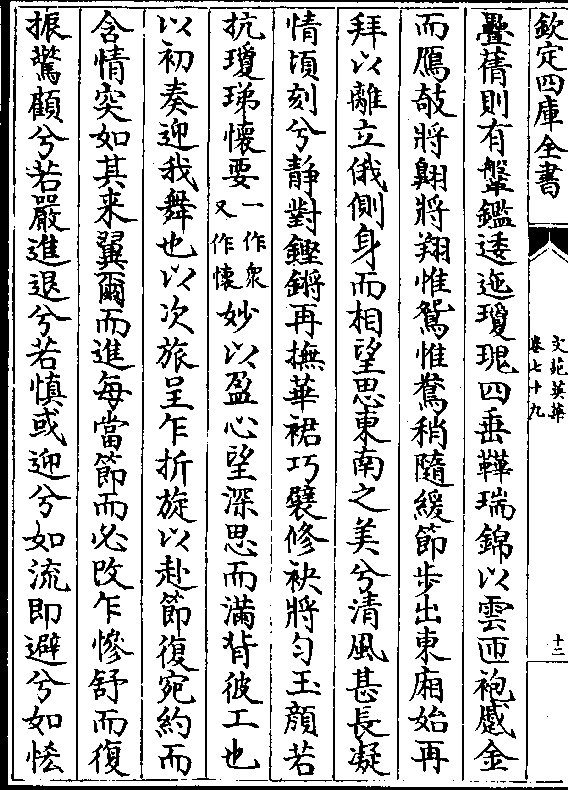 欽定四庫全書
文苑英華
卷七十九
十二
疊蒨則有鞶鑑逶迤瓊瑰四垂鞾瑞錦以雲匝袍蹙金
而鴈攲將翺將翔惟鴛惟鴦稍隨緩節步出東廂始再
拜以離立俄側身而相望思東南之美兮清風甚長凝
情頃刻兮靜對鏗鏘再撫華裙巧襞修袂將勻玉顏若
抗瓊珶懷要一作衆又作懷妙以盈心望深思而滿背彼工也
以初奏迎我舞也以次旅呈乍折旋以赴節復宛約而
含情突如其来翼爾而進每當節而必改乍慘舒而復
振驚顧兮若嚴進退兮若慎或迎兮如流即避兮如恡